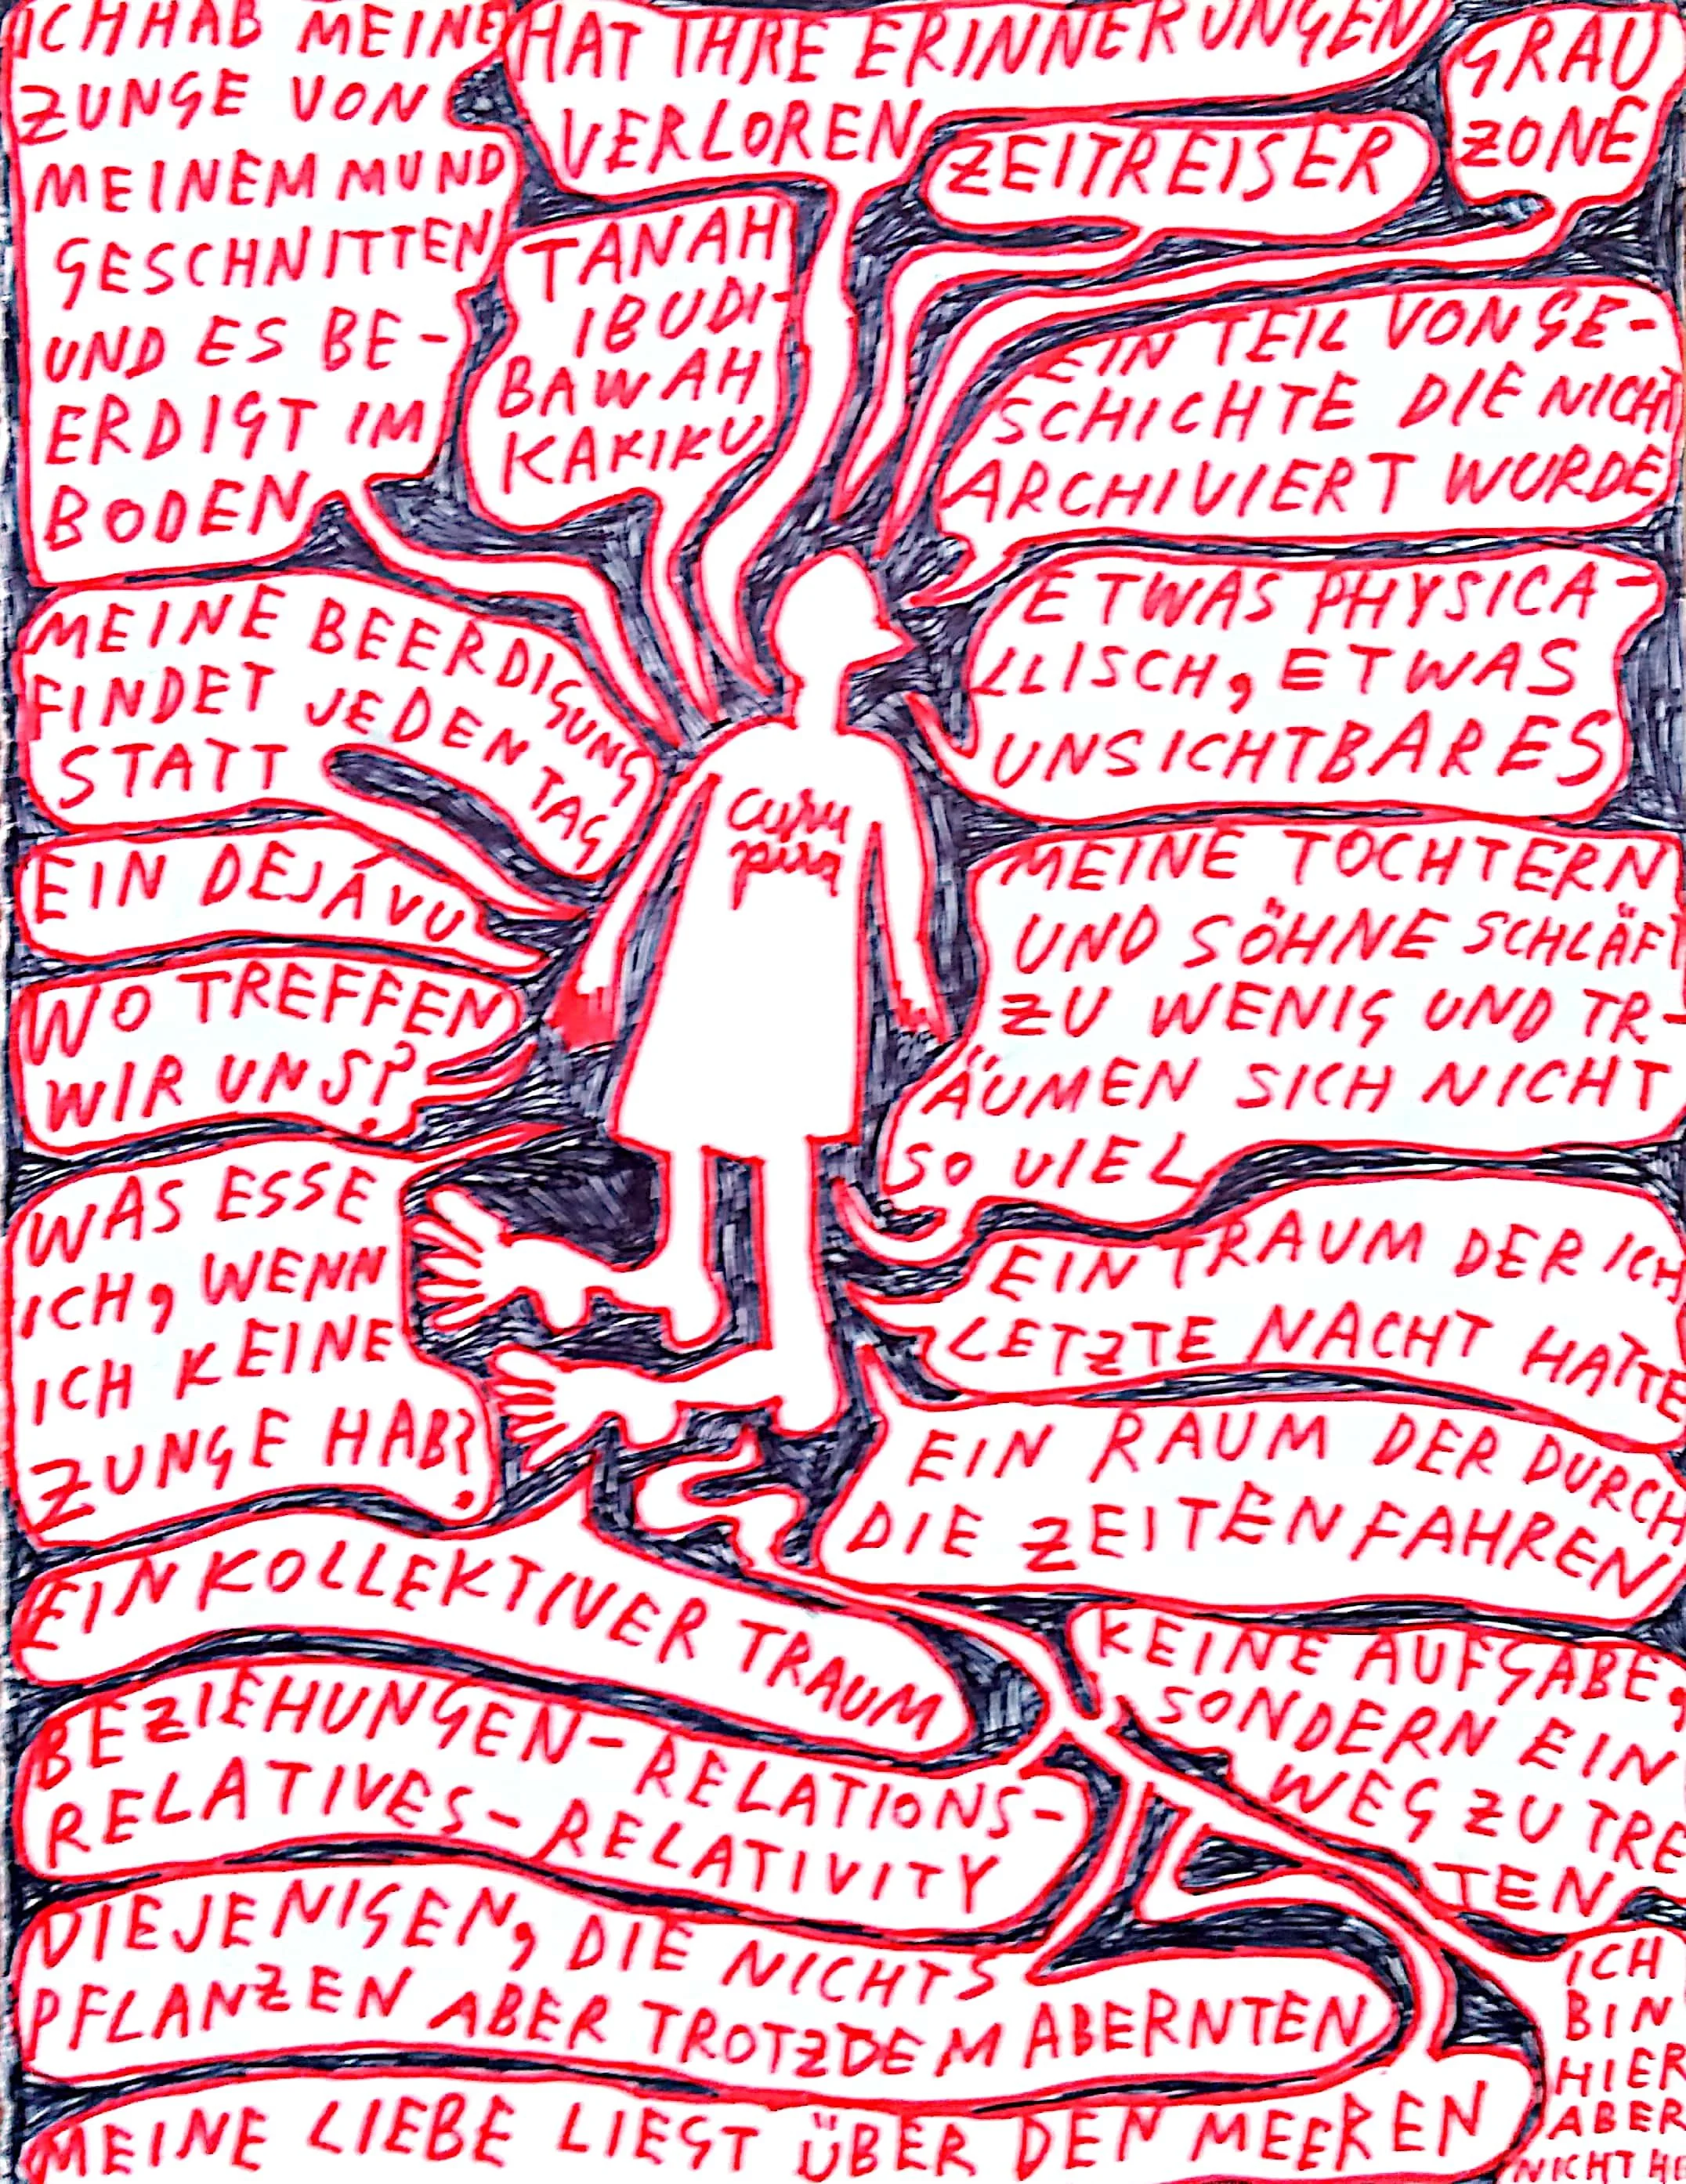 ICH HAB MEINE
ZUNGE VON
MEINEM MUND
GESCHNITTEN
UND ES BE-
ERDIGT IM
BODEN
HAT IHRE ERINNERUNGEN
VERLOREN
GRAU
ZONE
ZEITREISER
TANAH
IBUDI-
BAWAH
KAKIKU
EIN TEIL VON GE-
SCHICHTE DIE NICHT
ARCHIVIERT WURDE
ETWAS PHYSICA-
LLISCH, ETWAS
UNSICHTBARES
MEINE BEERDIGUNG
FINDET JEDEN TAG
STATT
curu
pira
EIN DEJÁVU
MEINE TOCHTERN
UND SÖHNE SCHLÄFT
ZU WENIG UND TR-
ÄUMEN SICH NICHT
SO VIEL
WO TREFFEN
WIR UNS?
WAS ESSE
ICH, WENN
ICH KEINE
ZUNGE HAB?
EIN TRAUM DER ICH
LETZTE NACHT HATTE
EIN RAUM DER DURCH
DIE ZEITEN FAHREN
EIN KOLLEKTIVER TRAUM
KEINE AUFGABE,
SONDERN EIN
WEG ZU TRE
TEN
BEZIEHUNGEN-RELATIONS-
RELATIVES-RELATIVITY
DIEJENIGEN, DIE NICHTS
PFLANZEN ABER TROTZDEM ABERNTEN
ICH
BIN
HIER
ABER
NICHT HI
MEINE LIEBE LIEGT ÜBER DEN MEEREN